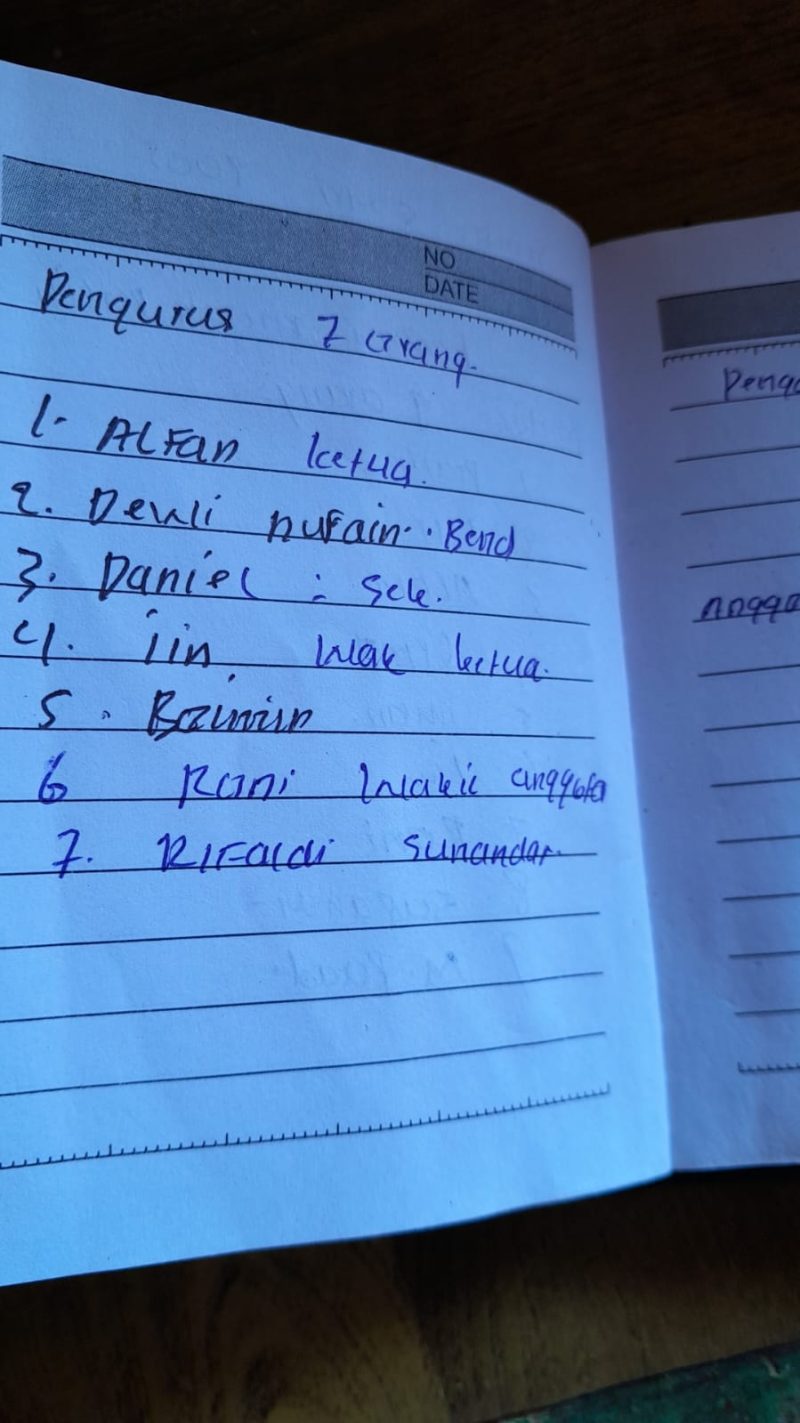 NO
DATE
Pengurus 7 orang.
1. ALFan ketua.
2. Dewli nufain. . Bend
3. Daniel : Sek.
4. iin wak ketua.
5.
6 Roni wakil anggota
7. Rifaldi sunandar.